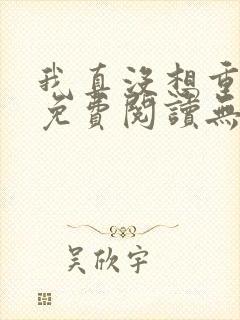 我真沒想重
免費閱讀無
吴欣宇